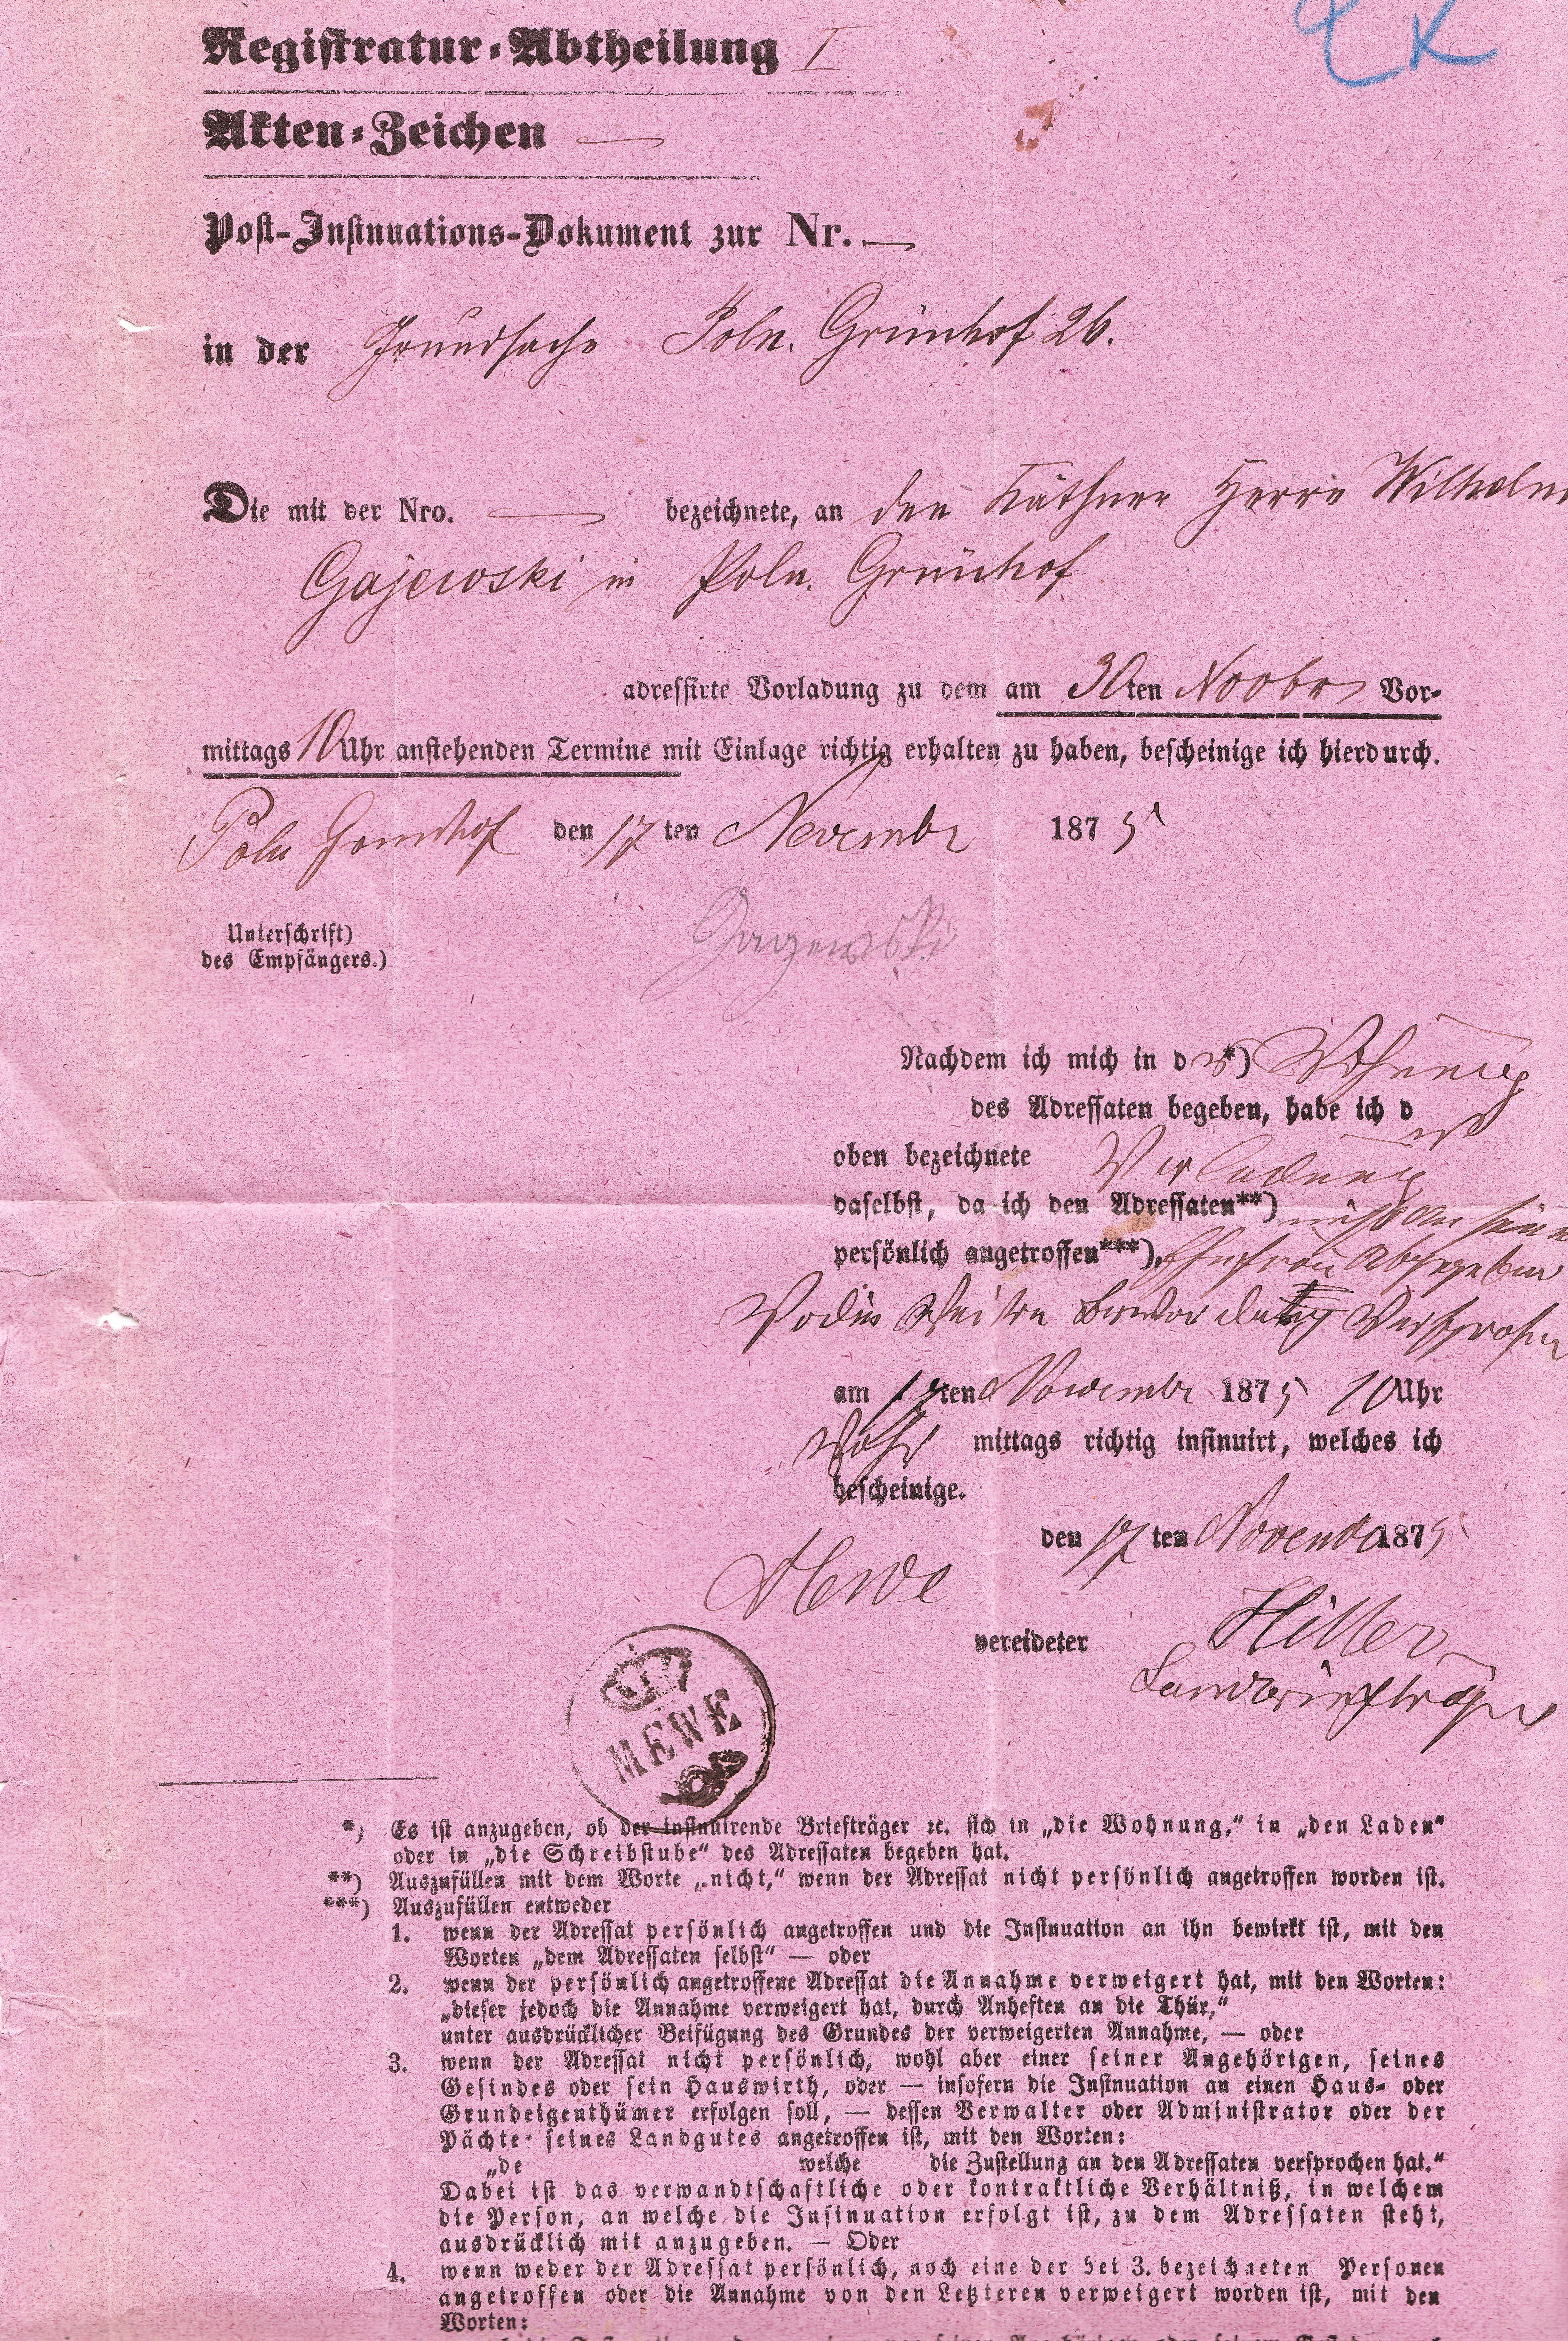 Registratur-Abtheilung I
Akten-Zeichen —
Post-Insinuations-Dokument zur Nr. —
in der Grundsache Poln. Grünhof 26.
Die mit der Nro. — bezeichnete, an den Käthner Herrn Wilhelm
Gajewski in Poln. Grünhof
adressirte Vorladung zu dem am 30ten Novbr Vor-
mittags 10 Uhr anstehenden Termine mit Einlage richtig erhalten zu haben, bescheinige ich hierdurch.
Poln den 17 ten Novembr 1875
Unterschrift)
des Empfängers.)
Gagewski
Nachdem ich mich in d *) Wohnung
des Adressaten begeben, habe ich d
oben bezeichnete Vorladung
daselbst, da ich den Adressaten**) nicht an seine
persönlich angetroffen***), Ehefrau abgegeben
am 17ten Novembr 1875 10 Uhr
Vor mittags richtig insinuirt, welches ich
bescheinige.
Mewe den 17 ten Novemb 1875
vereideter Hitler
Landbriefträger
MEWE
*) Es ist anzugeben, ob der insinuirende Briefträger ꝛc. sich in „die Wohnung,“ in „den Laden“
oder in „die Schreibstube“ des Adressaten begeben hat.
**) Auszufüllen mit dem Worte „nicht,“ wenn der Adressat nicht persönlich angetroffen worden ist.
***) Auszufüllen entweder
1. wenn der Adressat persönlich angetroffen und die Insinuation an ihn bewirkt ist, mit den
Worten „dem Adressaten selbst“ — oder
2. wenn der persönlich angetroffene Adressat die Annahme verweigert hat, mit den Worten:
„dieser jedoch die Annahme verweigert hat, durch Anheften an die Thür,“
unter ausdrücklicher Beifügung des Grundes der verweigerten Annahme, — oder
3. wenn der Adressat nicht persönlich, wohl aber einer seiner Angehörigen, seines
Gesindes oder sein Hauswirth, oder — insofern die Insinuation an einen Haus- oder
Grundeigenthümer erfolgen soll, — dessen Verwalter oder Administrator oder der
Pächte seines Landgutes angetroffen ist, mit den Worten:
„de welche die Zustellung an den Adressaten versprochen hat.“
Dabei ist das verwandtschaftliche oder kontraktliche Verhältniß, in welchem
die Person, an welche die Insinuation erfolgt ist, zu dem Adressaten steht,
ausdrücklich mit anzugeben. — Oder
4. wenn weder der Adressat persönlich, noch eine der bei 3. bezeichneten Personen
angetroffen oder die Annahme von den Letzteren verweigert worden ist, mit den
Worten: